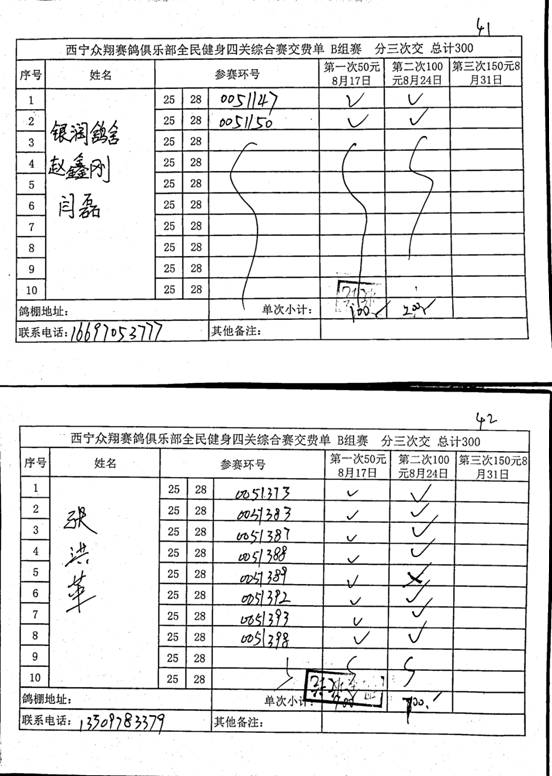 41
西宁众翔赛鸽俱乐部全民健身四关综合赛交费单 B组赛 分三次交 总计300
序号 姓名 参赛环号 第一次50元8月17日 第二次100元8月24日 第三次150元8月31日
1 25 28 0051147 ✓ ✓
2 25 28 0051150 ✓ ✓
银润鸽舍
3 25 28
赵鑫刚
4 25 28
5 25 28
闫磊
6 25 28
7 25 28
8 25 28
9 25 28
10 25 28
鸽棚地址: 单次小计: 100 200
联系电话:16697053777 其他备注:
42
西宁众翔赛鸽俱乐部全民健身四关综合赛交费单 B组赛 分三次交 总计300
序号 姓名 参赛环号 第一次50元8月17日 第二次100元8月24日 第三次150元8月31日
张洪革
1 25 28 0051373 ✓ ✓
2 25 28 0051383 ✓ ✓
3 25 28 0051387 ✓ ✓
4 25 28 0051388 ✓ ✓
5 25 28 0051389 ✓ ✗
6 25 28 0051392 ✓ ✓
7 25 28 0051393 ✓ ✓
8 25 28 0051398 ✓ ✓
9 25 28
10 25 28
鸽棚地址: 单次小计: 400 700
联系电话:13509783379 其他备注: